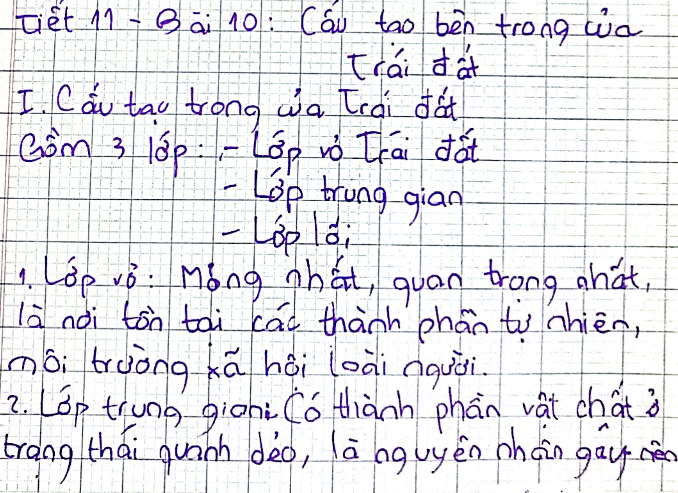 Tiết 11 - Bài 10: Cấu tạo bên trong của
Trái đất
I. Cấu tạo trong của Trái đất
Gồm 3 lớp: - Lớp vỏ Trái đất
- Lớp trung gian
- Lớp lõi
1. Lớp vỏ: Mỏng nhất, quan trọng nhất,
là nơi tồn tại các thành phần tự nhiên,
môi trường xã hội loài người.
2. Lớp trung gian: Có thành phần vật chất ở
trạng thái quánh dẻo, là nguyên nhân gây nên